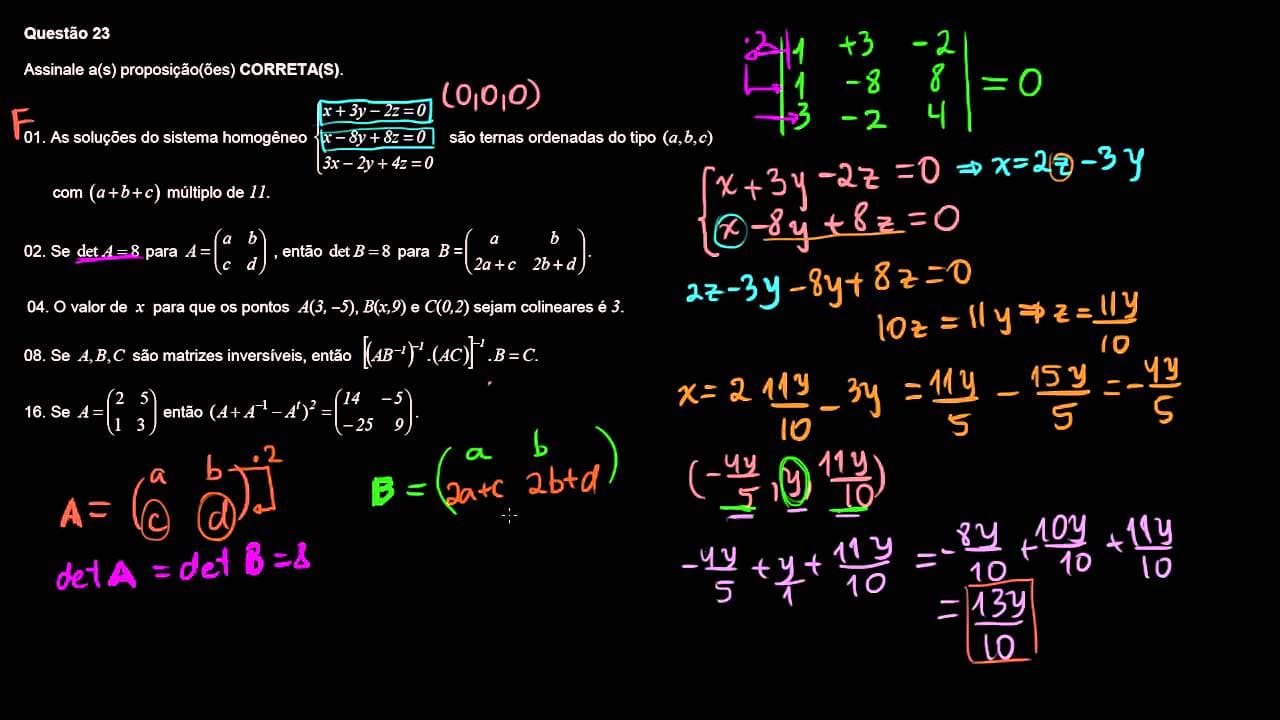 Questão 23
Assinale a(s) proposição(ões) CORRETA(S).
F
(0,0,0)
x + 3y − 2z = 0
01. As soluções do sistema homogêneo { x − 8y + 8z = 0 são ternas ordenadas do tipo (a,b,c)
3x − 2y + 4z = 0
com (a + b + c) múltiplo de 11.
02. Se det A = 8 para A = (a b; c d), então det B = 8 para B = (a b; 2a + c 2b + d).
04. O valor de x para que os pontos A(3, −5), B(x,9) e C(0,2) sejam colineares é 3.
08. Se A, B, C são matrizes inversíveis, então [(AB⁻¹)⁻¹.(AC)]⁻¹.B = C.
16. Se A = (2 5; 1 3) então (A + A⁻¹ − Aᵗ)² = (14 −5; −25 9).
A = (a b; c d) .2
B = (a b; 2a+c 2b+d)
det A = det B = 8
.2 | 1 +3 -2 |
| 1 -8 8 | = 0
| 3 -2 4 |
{ x + 3y - 2z = 0 ⇒ x = 2z - 3y
x - 8y + 8z = 0
2z - 3y - 8y + 8z = 0
10z = 11y ⇒ z = 11y/10
x = 2 11y/10 - 3y = 11y/5 - 15y/5 = -4y/5
(-4y/5, y, 11y/10)
-4y/5 + y/1 + 11y/10 = -8y/10 + 10y/10 + 11y/10
= 13y/10